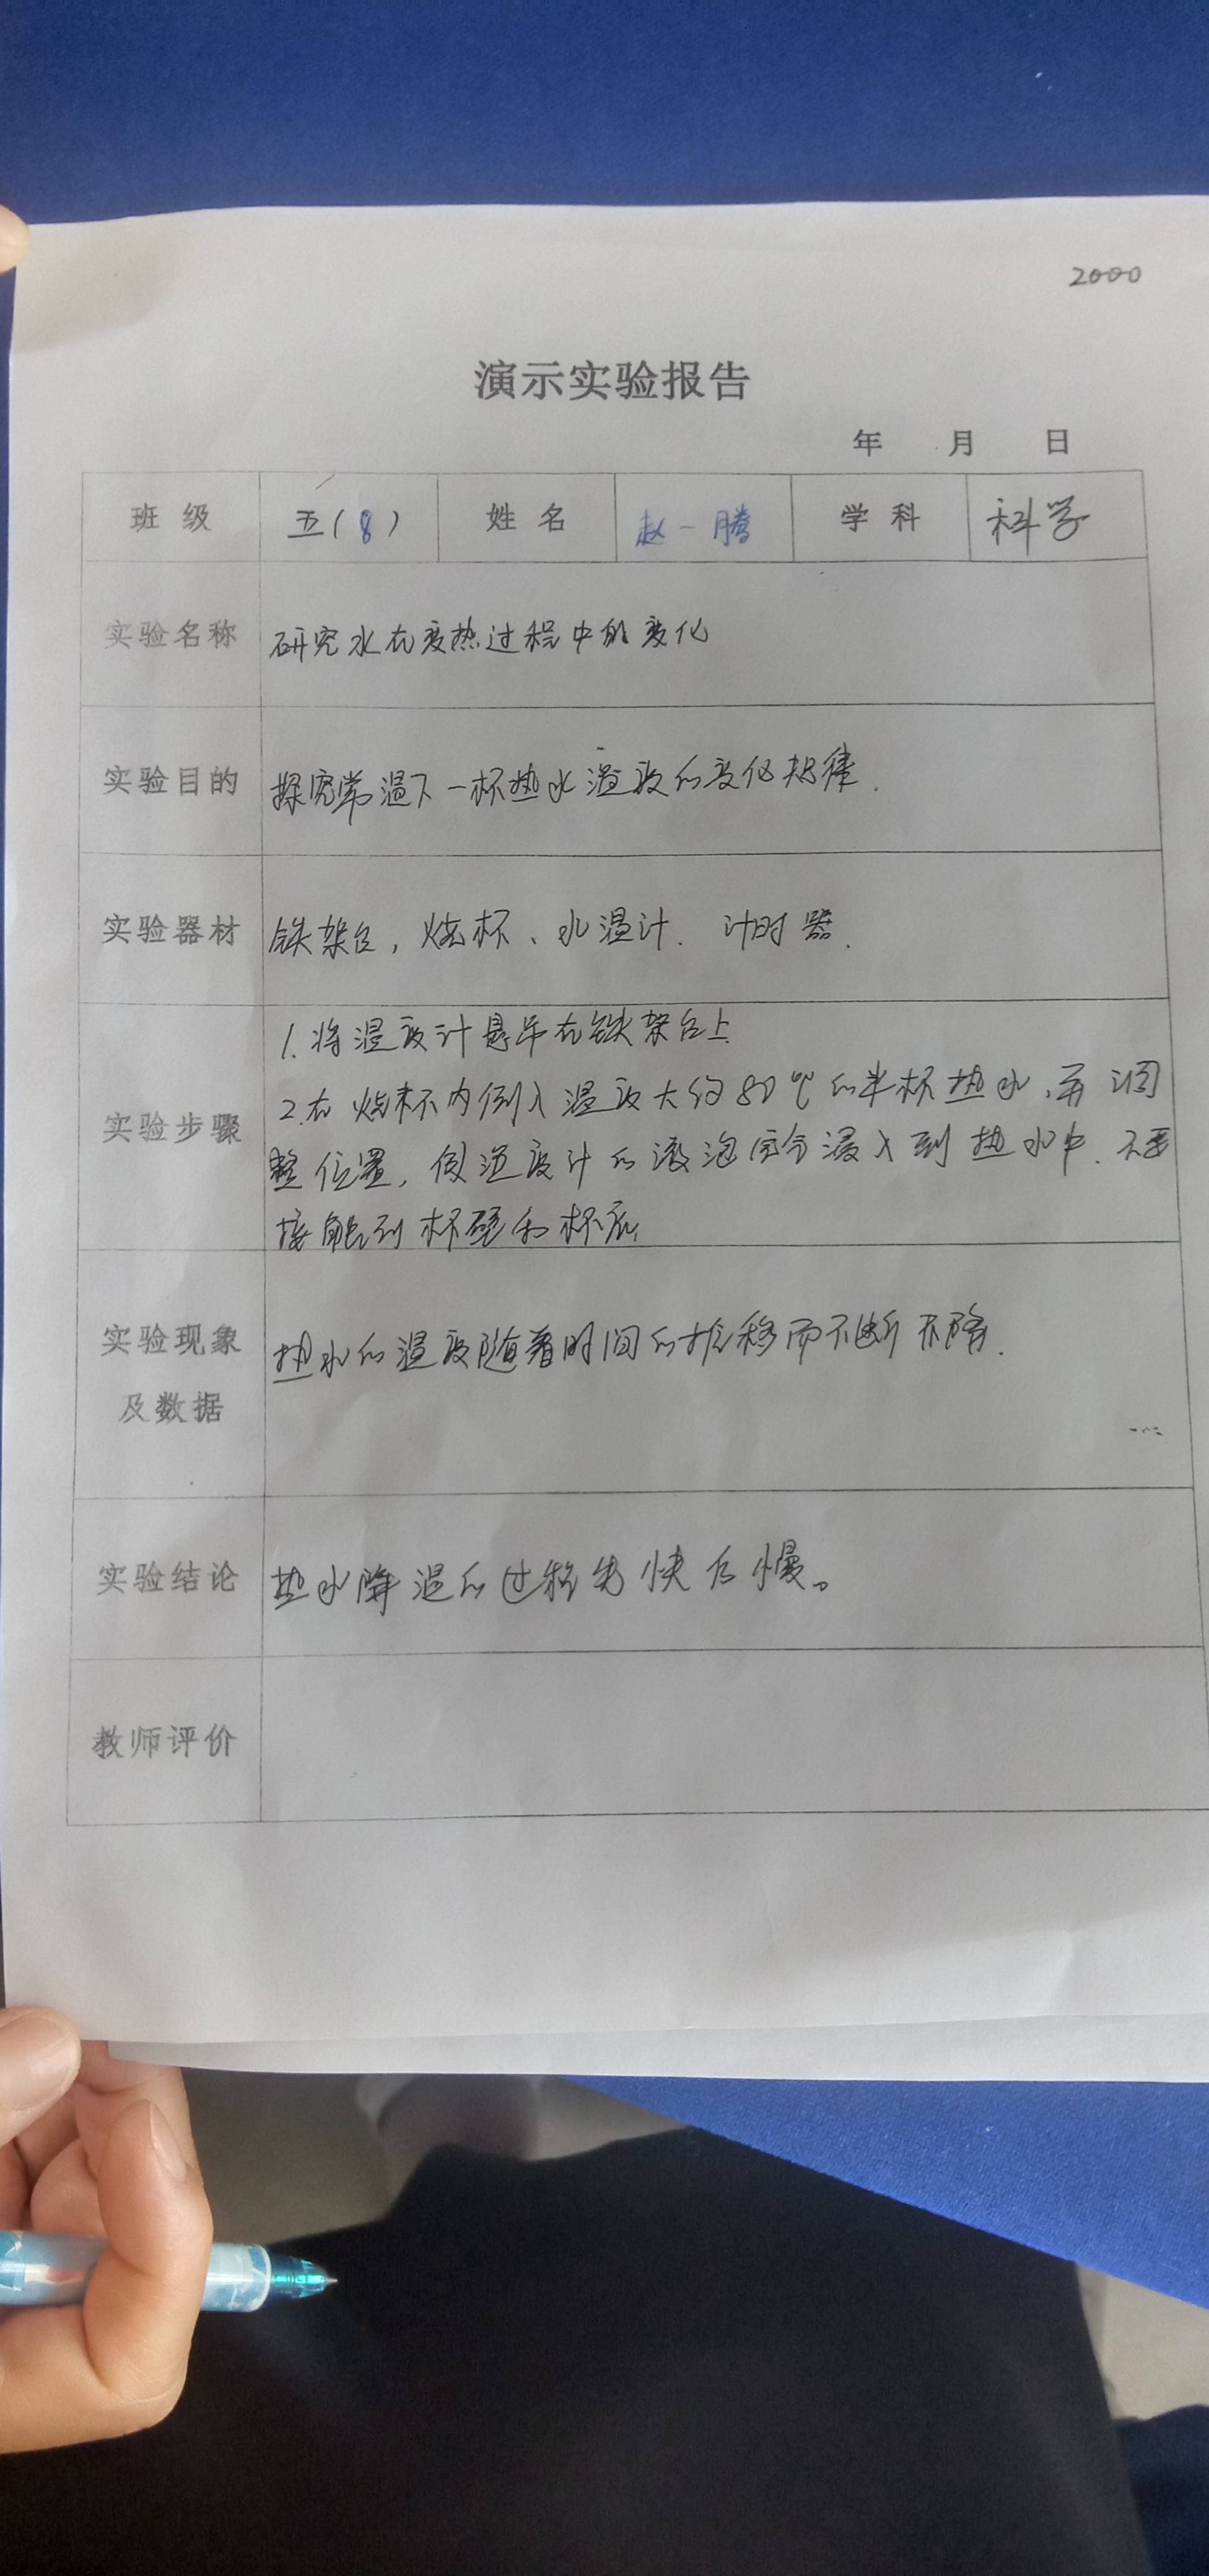 2000
演示实验报告
年 月 日
班 级 五(8) 姓 名 赵一腾 学 科 科学
实验名称 研究水在变热过程中的变化
实验目的 探究常温下一杯热水温度的变化规律.
实验器材 铁架台, 烧杯、水温计. 计时器.
实验步骤
1. 将温度计悬吊在铁架台上
2. 在烧杯内倒入温度大约80℃的半杯热水,并调
整位置, 使温度计的液泡完全浸入到热水中. 不要
接触到杯壁和杯底
实验现象
及数据
热水的温度随着时间的推移而不断下降.
实验结论 热水降温的过程先快后慢。
教师评价